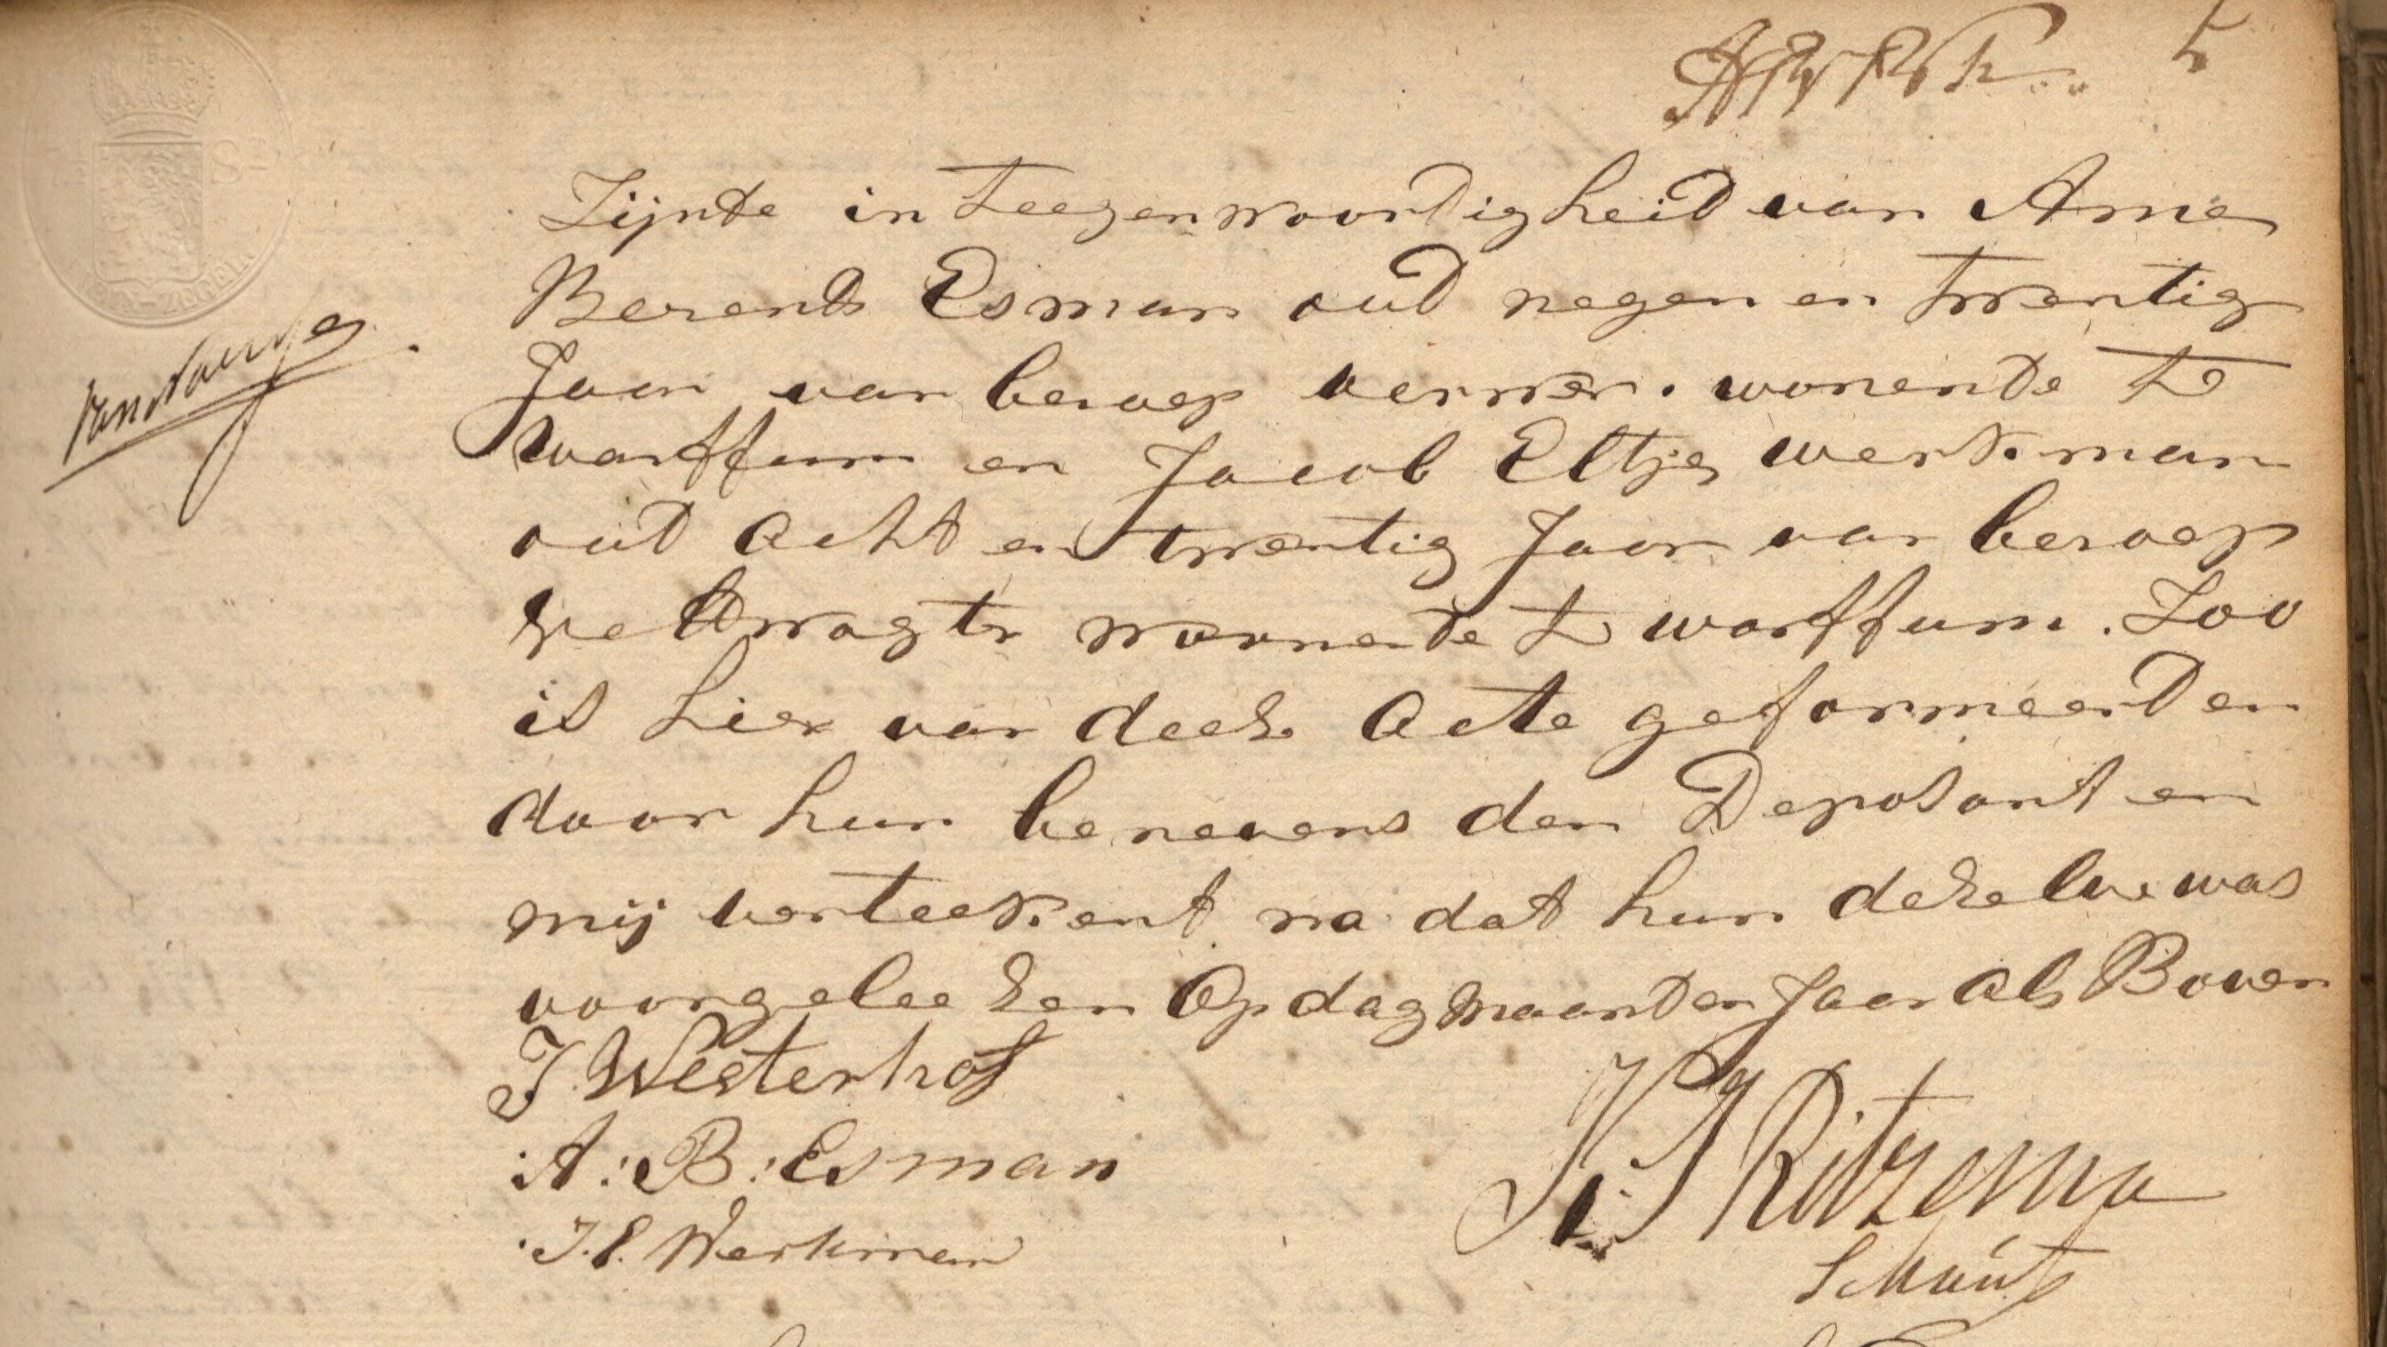 5
Zijnde in teegenwoordigheid van Arne
Berends Esman oud negen en twentig
Jaar van beroep verwer. wonende te
warffum en Jacob Eltjes werkman
oud acht en twentig Jaar van beroep
veltwagter woonende te warffum. Zoo
is hier van deese acte geformeerd en
door hun benevens den Deposant en
mij verteekent na dat hun dezelve was
voorgeleezen Op dag maand en Jaar als Boven
J. Westerhof
A: B: Esman
J. E. Werkman
Ritzema
Schout